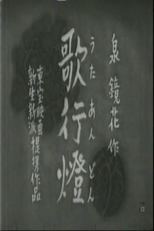 泉鏡花作
歌行燈
うたあんどん
東宝映画提携作品
新生新派